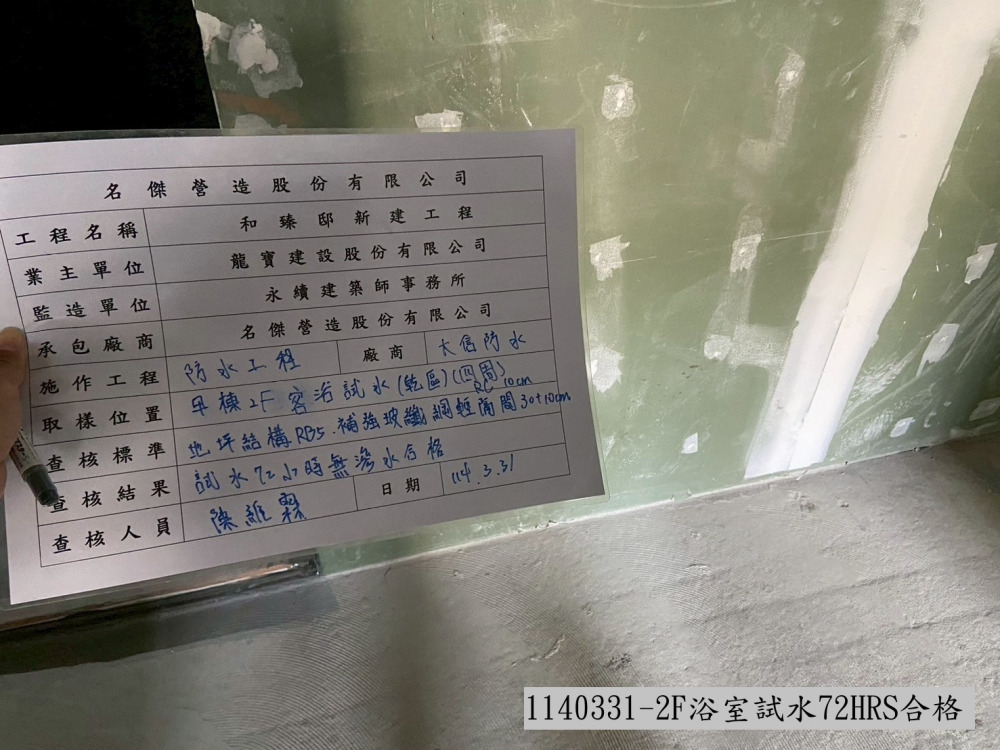 名傑營造股份有限公司
工程名稱 和臻邸新建工程
業主單位 龍寶建設股份有限公司
監造單位 永續建築師事務所
承包廠商 名傑營造股份有限公司
施作工程 防水工程 廠商 大信防水
取樣位置 早棟2F客浴試水(乾區)(四周)
RC 10cm
查核標準 地坪結構RB5.補強玻纖網輕隔間30+10cm
查核結果 試水72小時無滲水合格
查核人員 陳維霖 日期 114.3.31
1140331-2F浴室試水72HRS合格